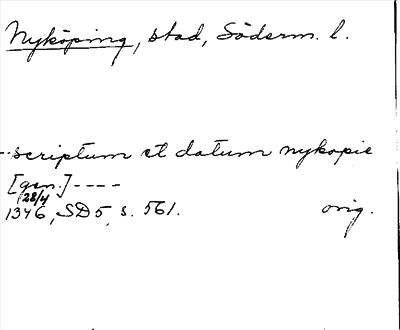 Nyköping, stad, Söderm. l.
--scriptum et datum nykopie
[gen.]----
28/4
1346, SD5, s. 561. orig.